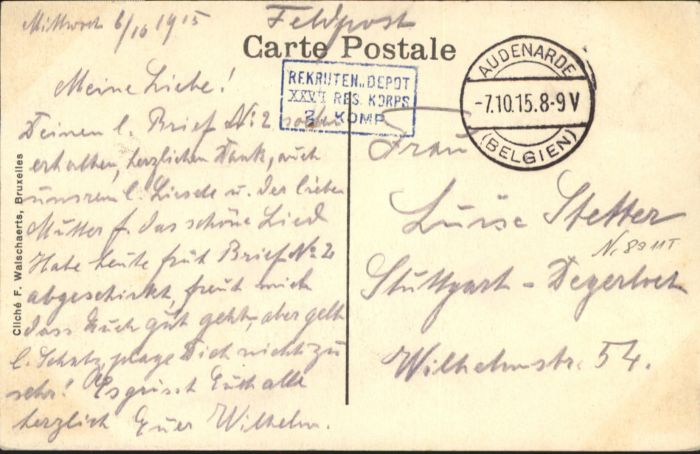 Mittwoch 6/10 1915
Feldpost
Carte Postale
REKRUTEN-DEPOT
XXVII RES. KORPS
2. KOMP.
AUDENARDE
-7.10.15.8-9V
(BELGIEN)
Meine Liebe!
Deinen l. Brief No 2 soeben
erhalten, herzlichen Dank, auch
unsrem l. Liesele u. der lieben
Mutter f. das schöne Lied
Habe heute früh Brief No 2
abgeschickt, freut mich
dass Euch gut geht, aber gelt
l. Schatz, plage Dich nicht zu
sehr! Es grüsst Euch alle
herzlich Euer Wilhelm.
Frau
Luise Stetter
N. 8911T
Stuttgart-Degerloch
Wilhelmstr. 54.
Cliché F. Walschaerts, Bruxelles